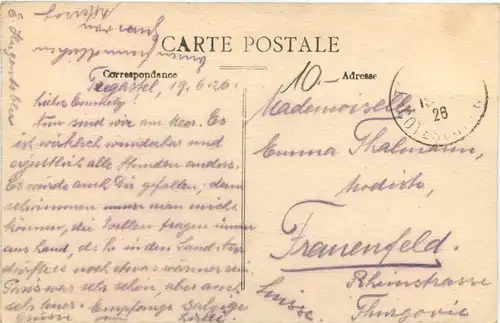 CARTE POSTALE
Correspondance
Adresse
10.-
Tregastel, 19.6.26.
Liebes Emmely!
Nun sind wir am Meer. Es
ist wirklich wunderbar und
eigentlich alle Stunden anders.
Es würde auch Dir gefallen, denn
schwimmen muss man nicht
können, die Wellen tragen immer
ans Land, d. h. in den Sand.
dürfte es noch etwas wärmer sein.
Paris war sehr schön aber auch
sehr teuer. Empfange
Grüsse von
einen freundlichen
Gruss von
Mademoiselle
Emma Thalmann,
Modiste,
Frauenfeld.
Rheinstrasse
Suisse. Thurgovie
26
COTES